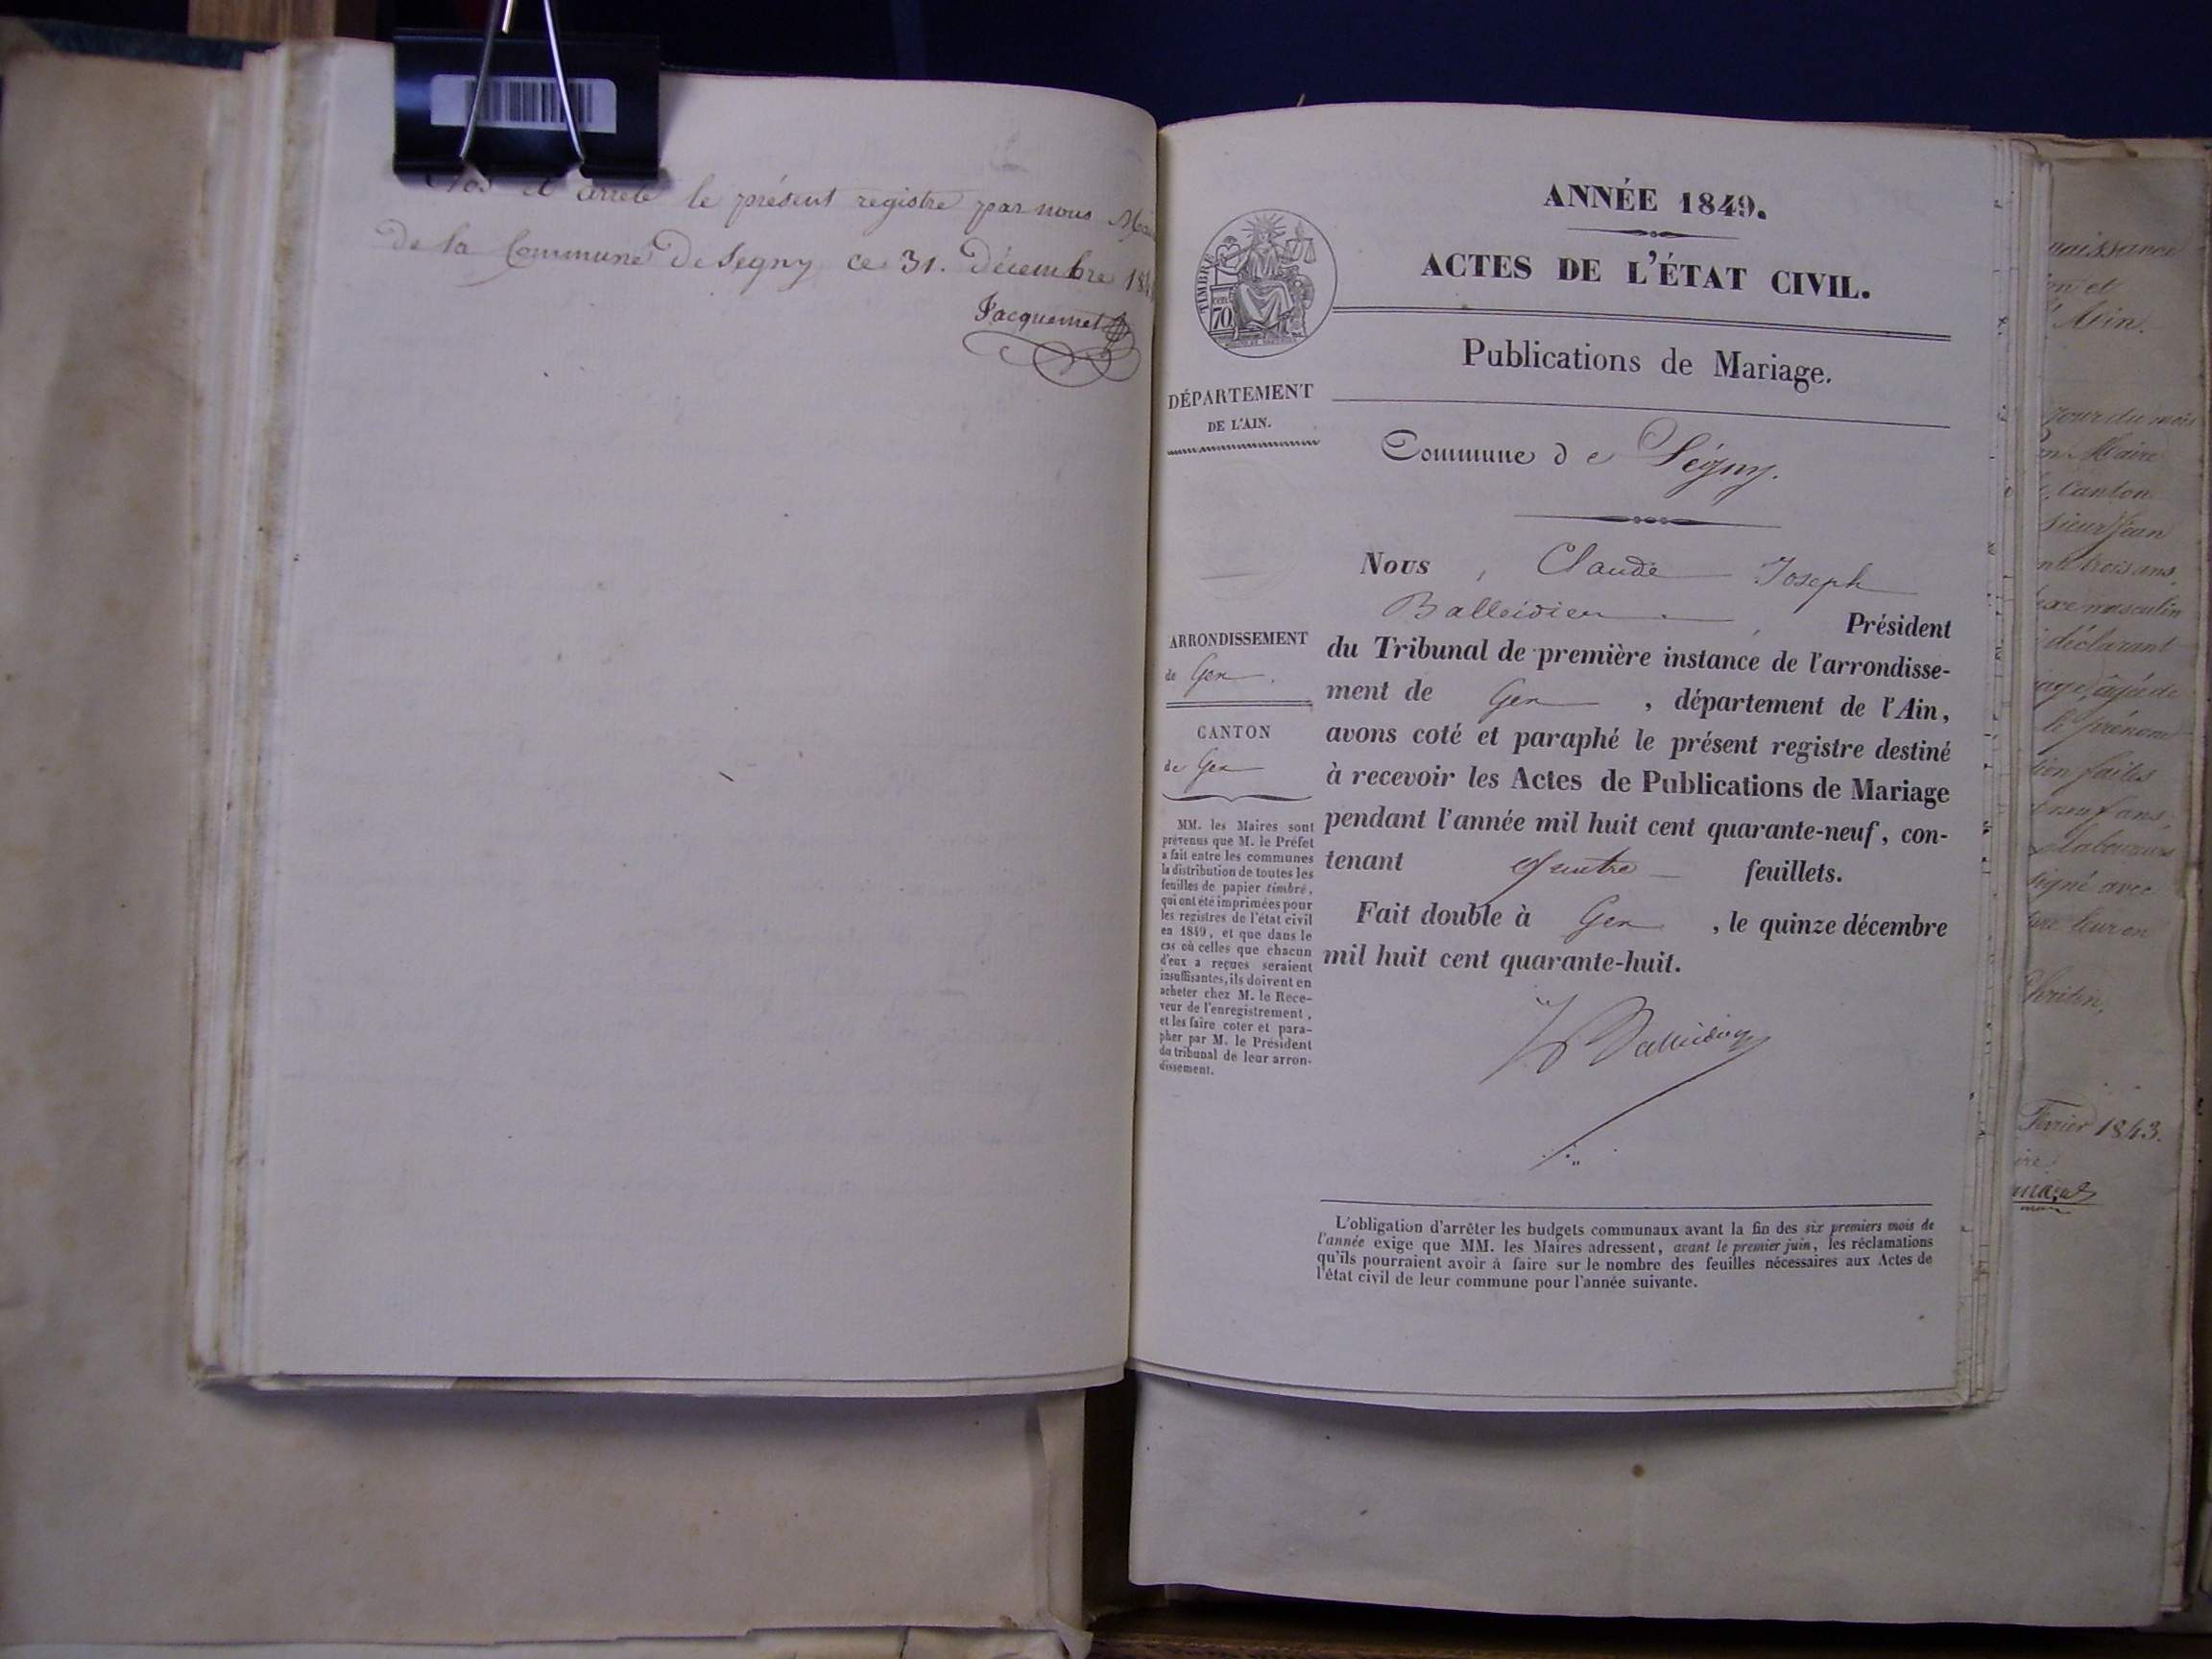 Clos et arrêté le présent registre par nous Maire
de la Commune de Segny ce 31. Décembre 184
Jacquemet
ANNÉE 1849.
ACTES DE L'ÉTAT CIVIL.
TIMBRE
70
cent
Publications de Mariage.
DÉPARTEMENT
DE L'AIN.
Commune de Ségny.
Nous, Claude Joseph
Balleidier, Président
du Tribunal de première instance de l'arrondisse-
ment de Gex, département de l'Ain,
avons coté et paraphé le présent registre destiné
à recevoir les Actes de Publications de Mariage
pendant l'année mil huit cent quarante-neuf, con-
tenant quatre feuillets.
Fait double à Gex, le quinze décembre
mil huit cent quarante-huit.
Balleidier
ARRONDISSEMENT
de Gex.
CANTON
de Gex
MM. les Maires sont
prévenus que M. le Préfet
a fait entre les communes
la distribution de toutes les
feuilles de papier timbré,
qui ont été imprimées pour
les registres de l'état civil
en 1849, et que dans le
cas où celles que chacun
d'eux a reçues seraient
insuffisantes, ils doivent en
acheter chez M. le Rece-
veur de l'enregistrement,
et les faire coter et para-
pher par M. le Président
du tribunal de leur arron-
dissement.
L'obligation d'arrêter les budgets communaux avant la fin des six premiers mois de
l'année exige que MM. les Maires adressent, avant le premier juin, les réclamations
qu'ils pourraient avoir à faire sur le nombre des feuilles nécessaires aux Actes de
l'état civil de leur commune pour l'année suivante.
naissance
et
Ain.
jour du mois
Maire
Canton
sieur Jean
trois ans,
masculin
déclarant
âgé de
le prénom
faites
neuf ans,
Laboureurs
signé avec
leur en
Février 1843.